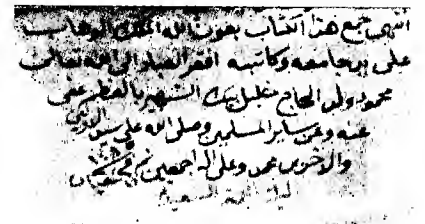 انتهى جمع هذا الكتاب بعون الله الملك الوهاب
على يد جامعه وكاتبه افقر العباد الى الله تعالى
محمود ولد الحاج خليل بك الشهير بالعظم عفى
عنه وعن ساير المسلمين وصلى الله على سيد الاولين
والاخرين محمد وعلى اله اجمعين تم في
ليلة